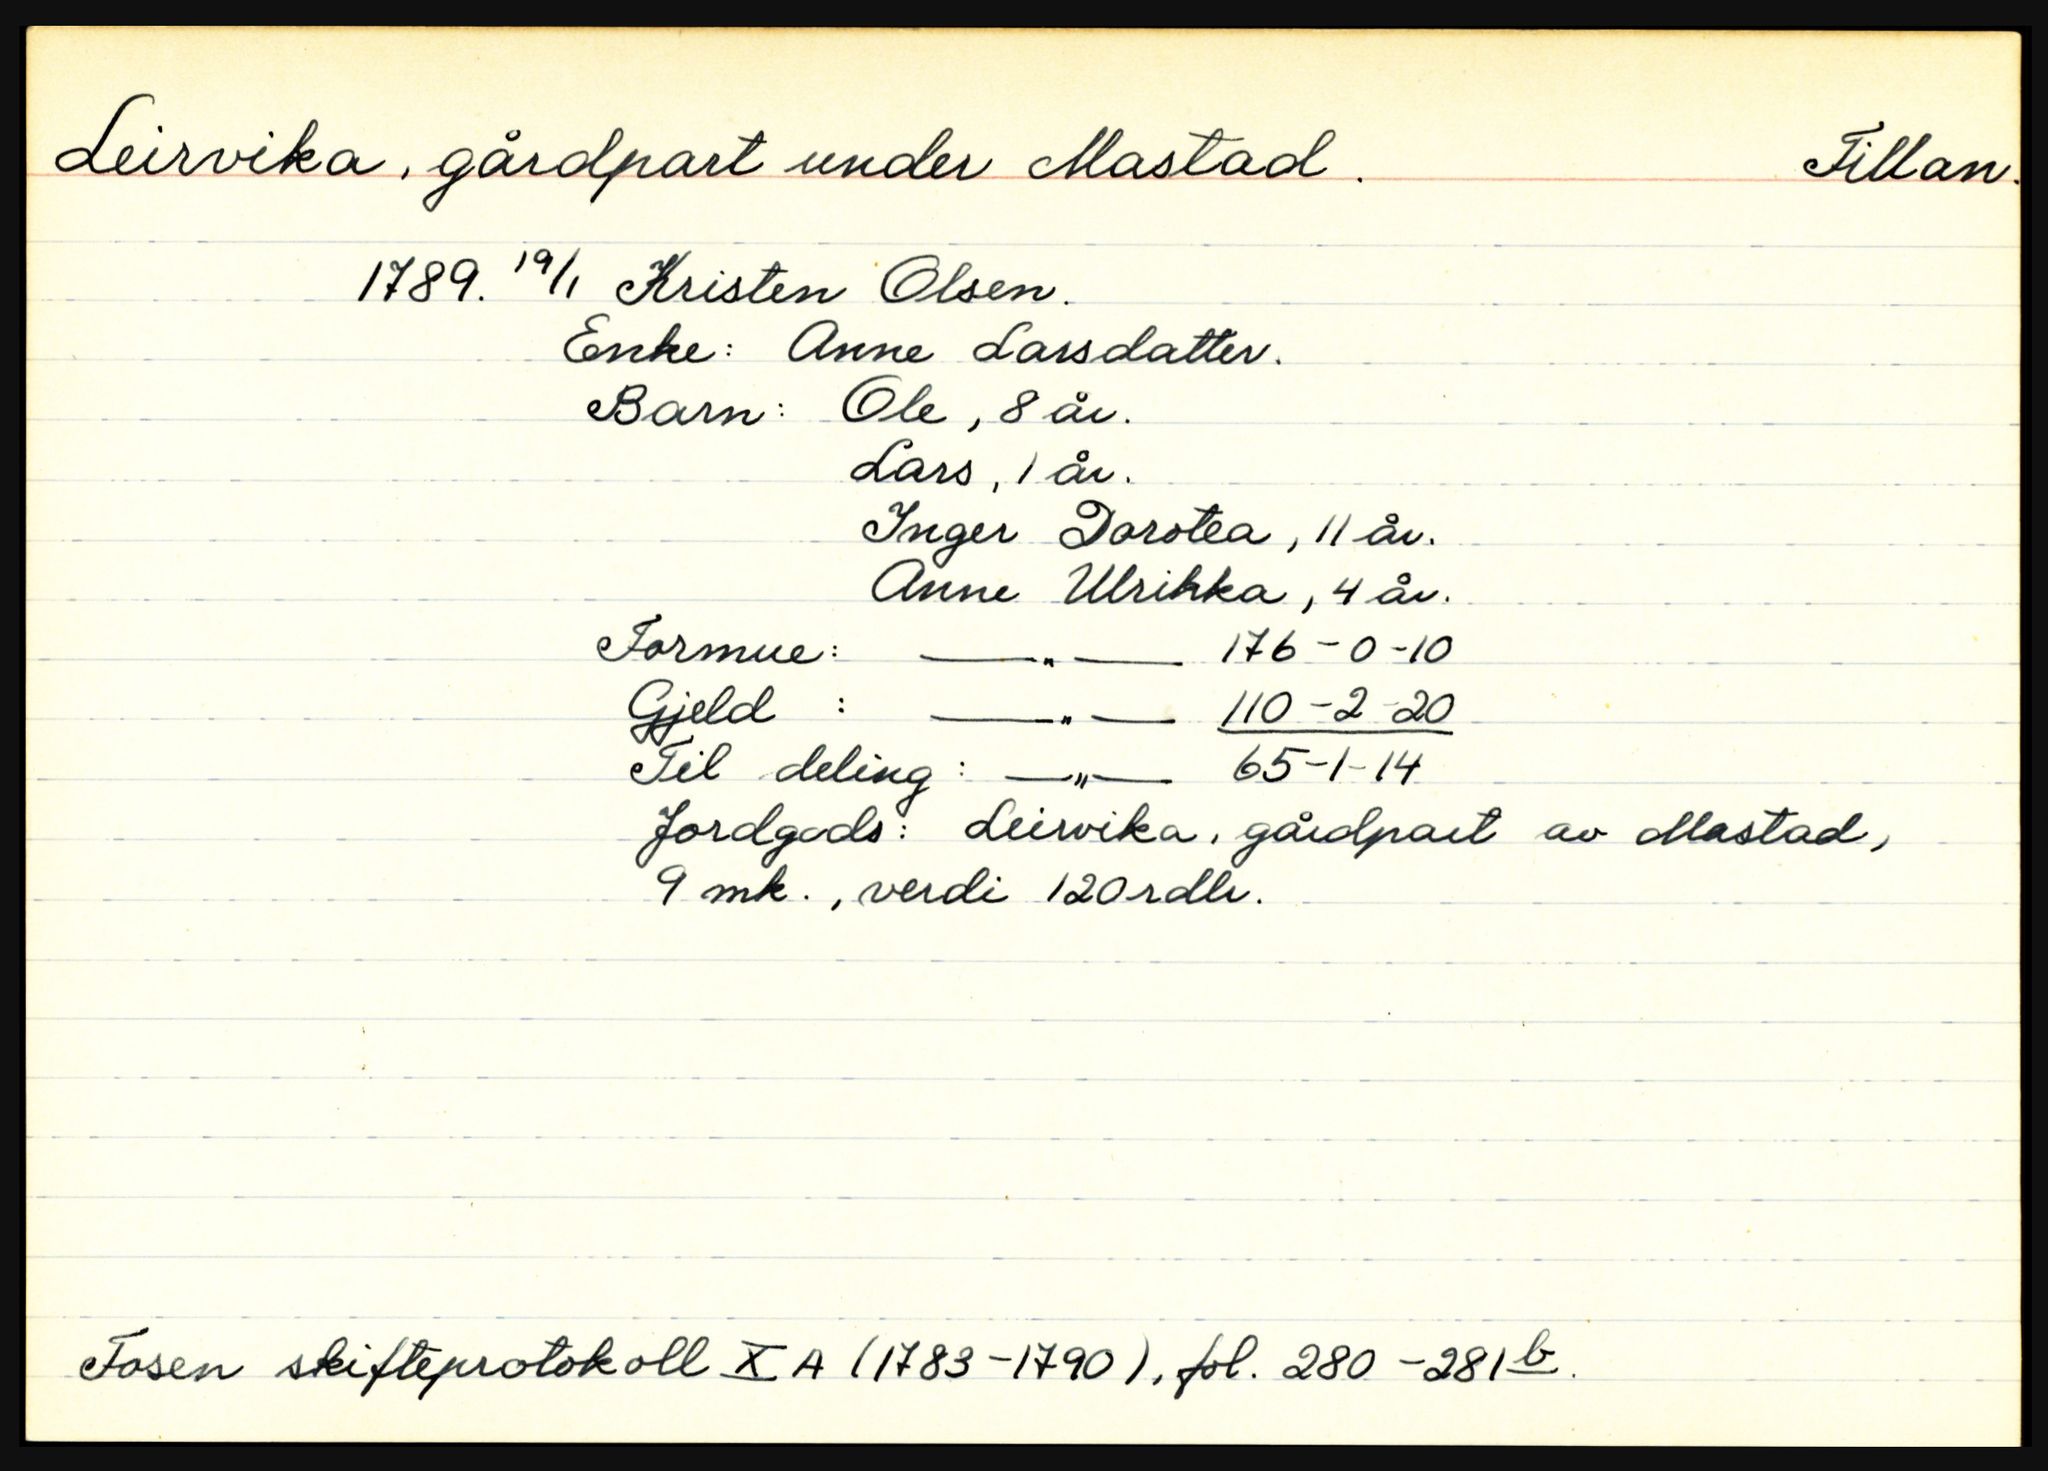 Leirvika, gårdpart under Mastad. Fillan.
1789. 19/1 Kristen Olsen.
Enke: Anne Larsdatter.
Barn: Ole, 8 år.
Lars, 1 år.
Inger Dorotea, 11 år.
Anne Ulrikka, 4 år.
Formue: —"— 176-0-10
Gjeld : —"— 110-2-20
Til deling: —"— 65-1-14
Jordgods: Leirvika, gårdpart av Mastad,
9 mk., verdi 120 rdlr.
Fosen skifteprotokoll X A (1783-1790), fol. 280-281b.